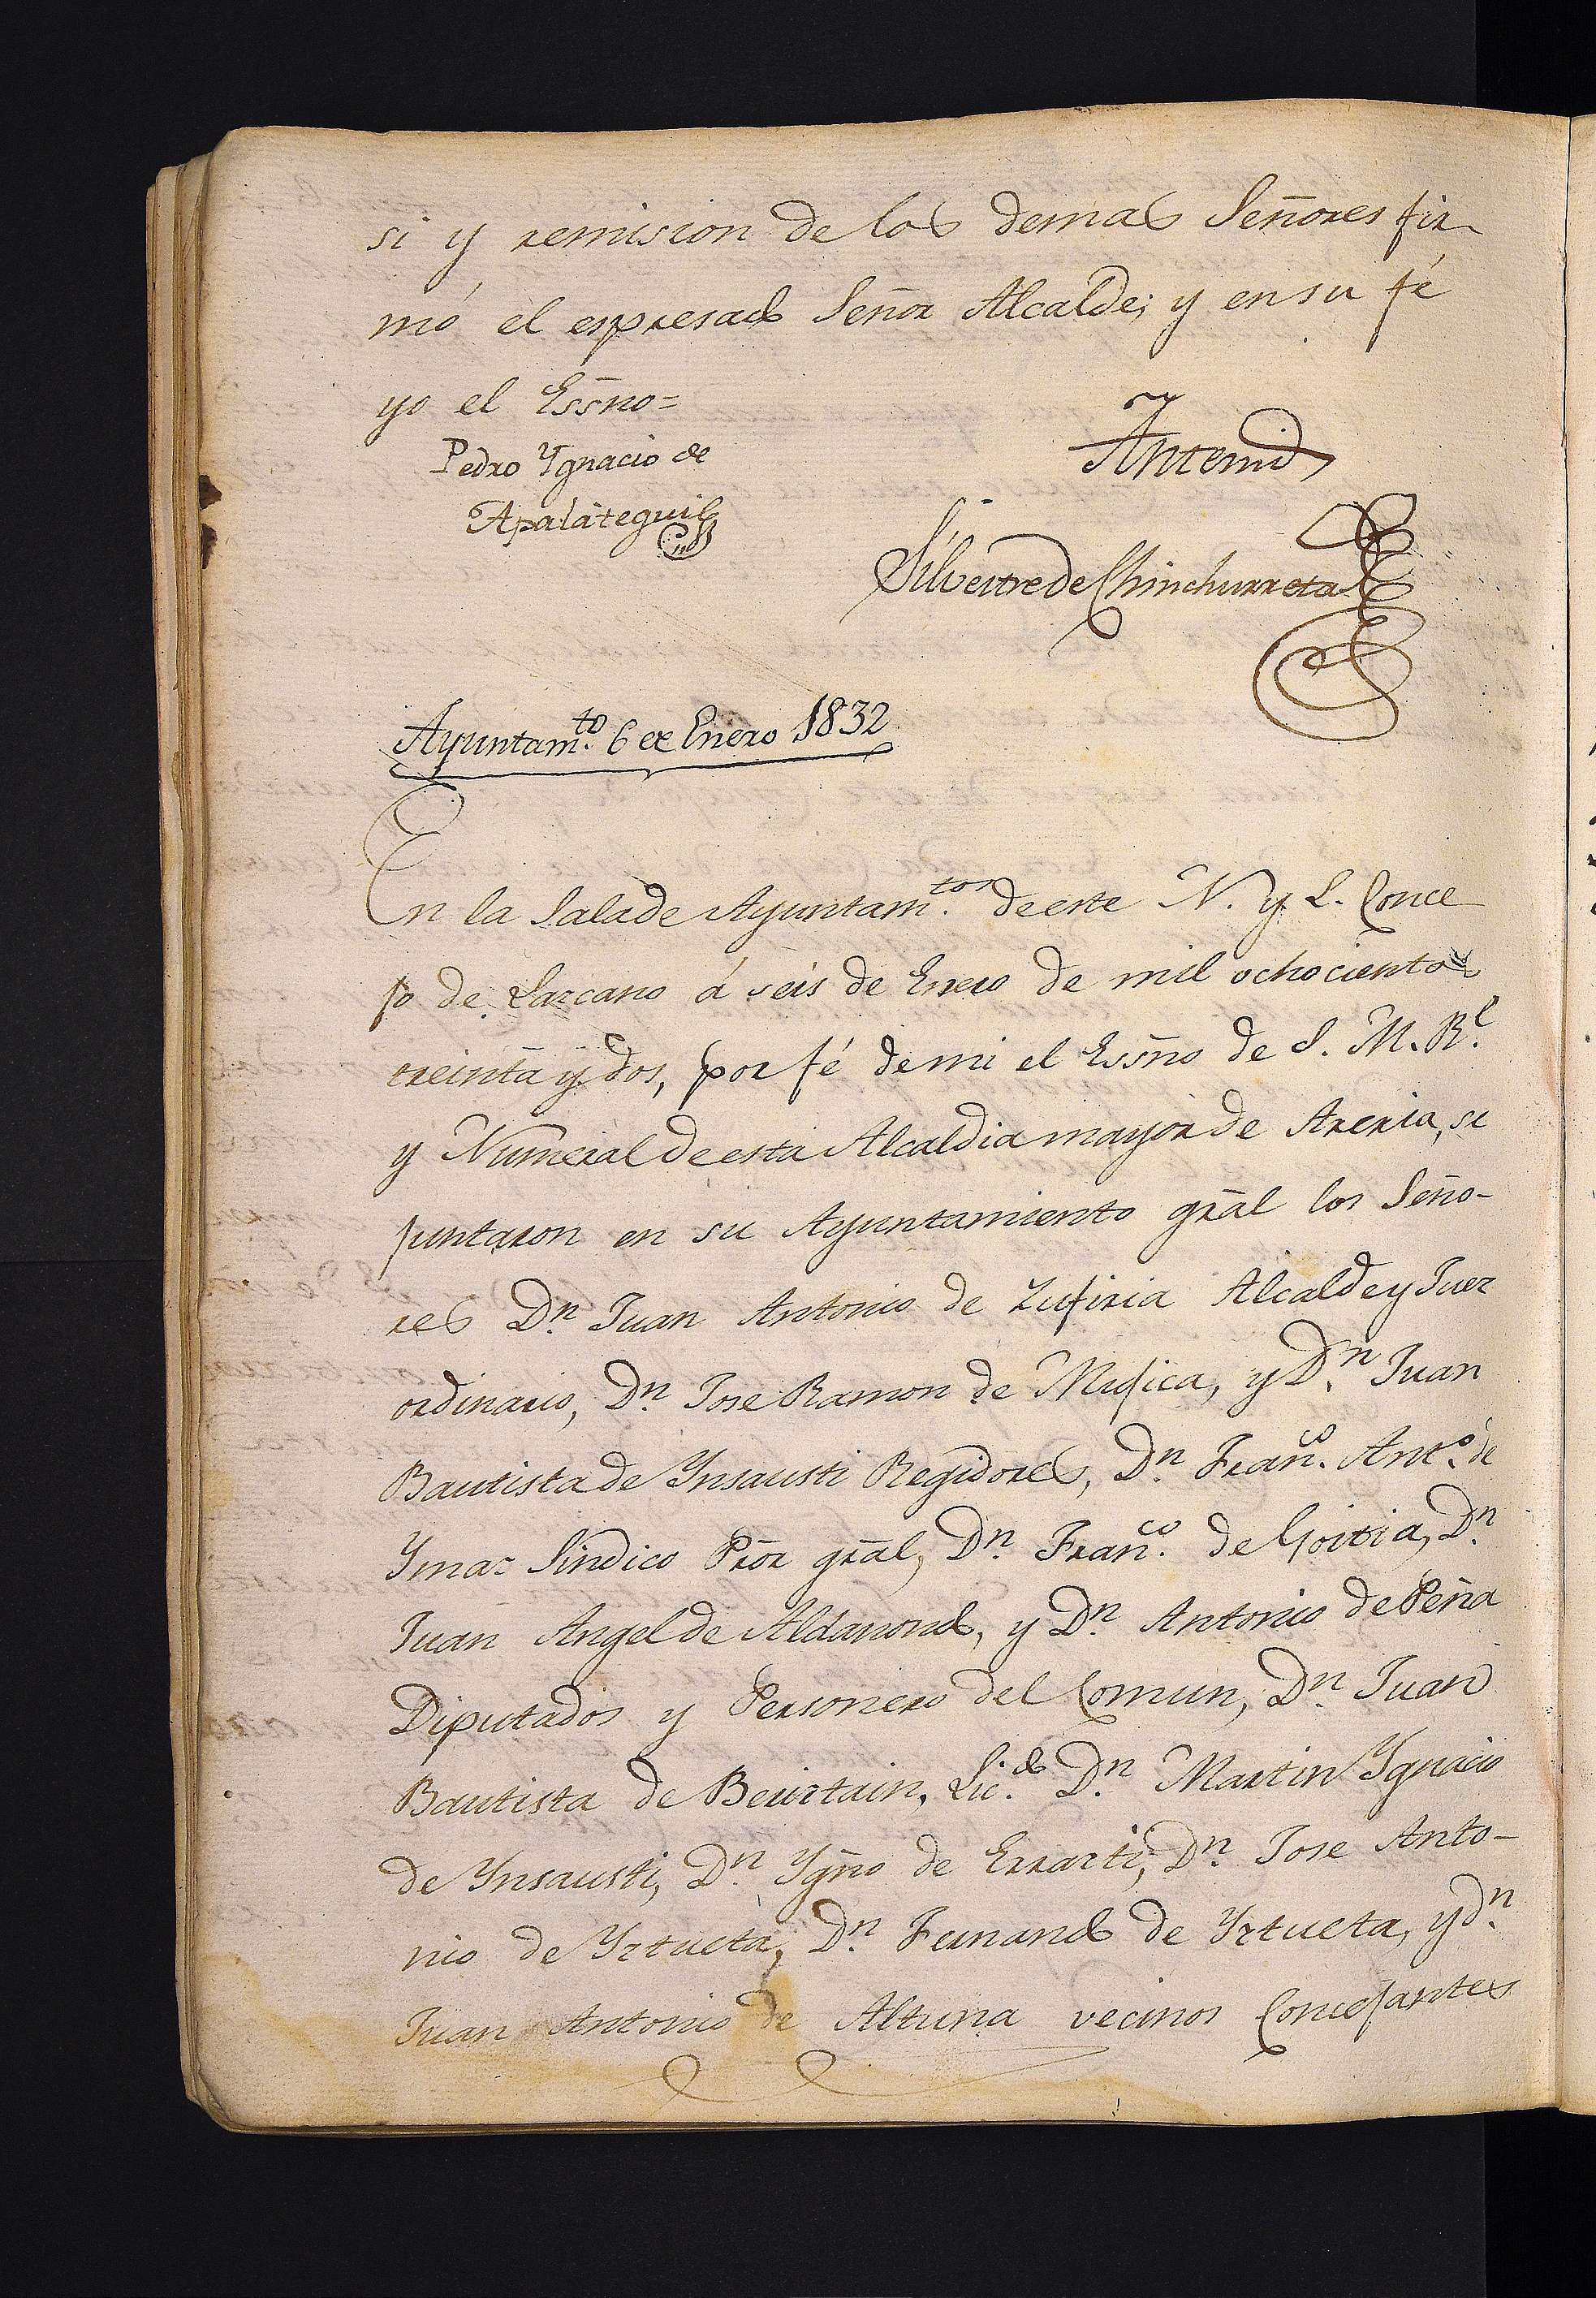 si y remision de los demas Señores fir-
mó el espresado Señor Alcalde; y en su fé
yo el Essño=
Pedro Ygnacio de
Apalategui
Antemi
Silvestre de Chinchurreta
Ayuntam.to 6 de Enero 1832
En la Sala de Ayuntam.tos de este N. y L. Conce
jo de Lazcano á seis de Enero de mil ochocientos
treinta y dos, por fé de mi el Essño de S. M. R.l
y Numeral de esta Alcaldia mayor de Areria, se
juntaron en su Ayuntamiento gral los Seño-
res D.n Juan Antonio de Zufiria Alcalde y Juez
ordinario, D.n Jose Ramon de Mujica, y D.n Juan
Bautista de Ynsausti Regidores, D.n Fran.co Ant.o de
Ymaz Sindico Pror gral, D.n Fran.co de Goitia, D.n
Juan Angel de Aldasoro, y D.n Antonio de Peña
Diputados y Personero del Comun, D.n Juan
Bautista de Lic.do D.n Martin Ygnacio
de Ynsausti, D.n Ygño de Errazti, D.n Jose Anto-
nio de Yztueta, D.n Fernando de Yztueta, y d.n
Juan Antonio de Altuna vecinos Concejantes